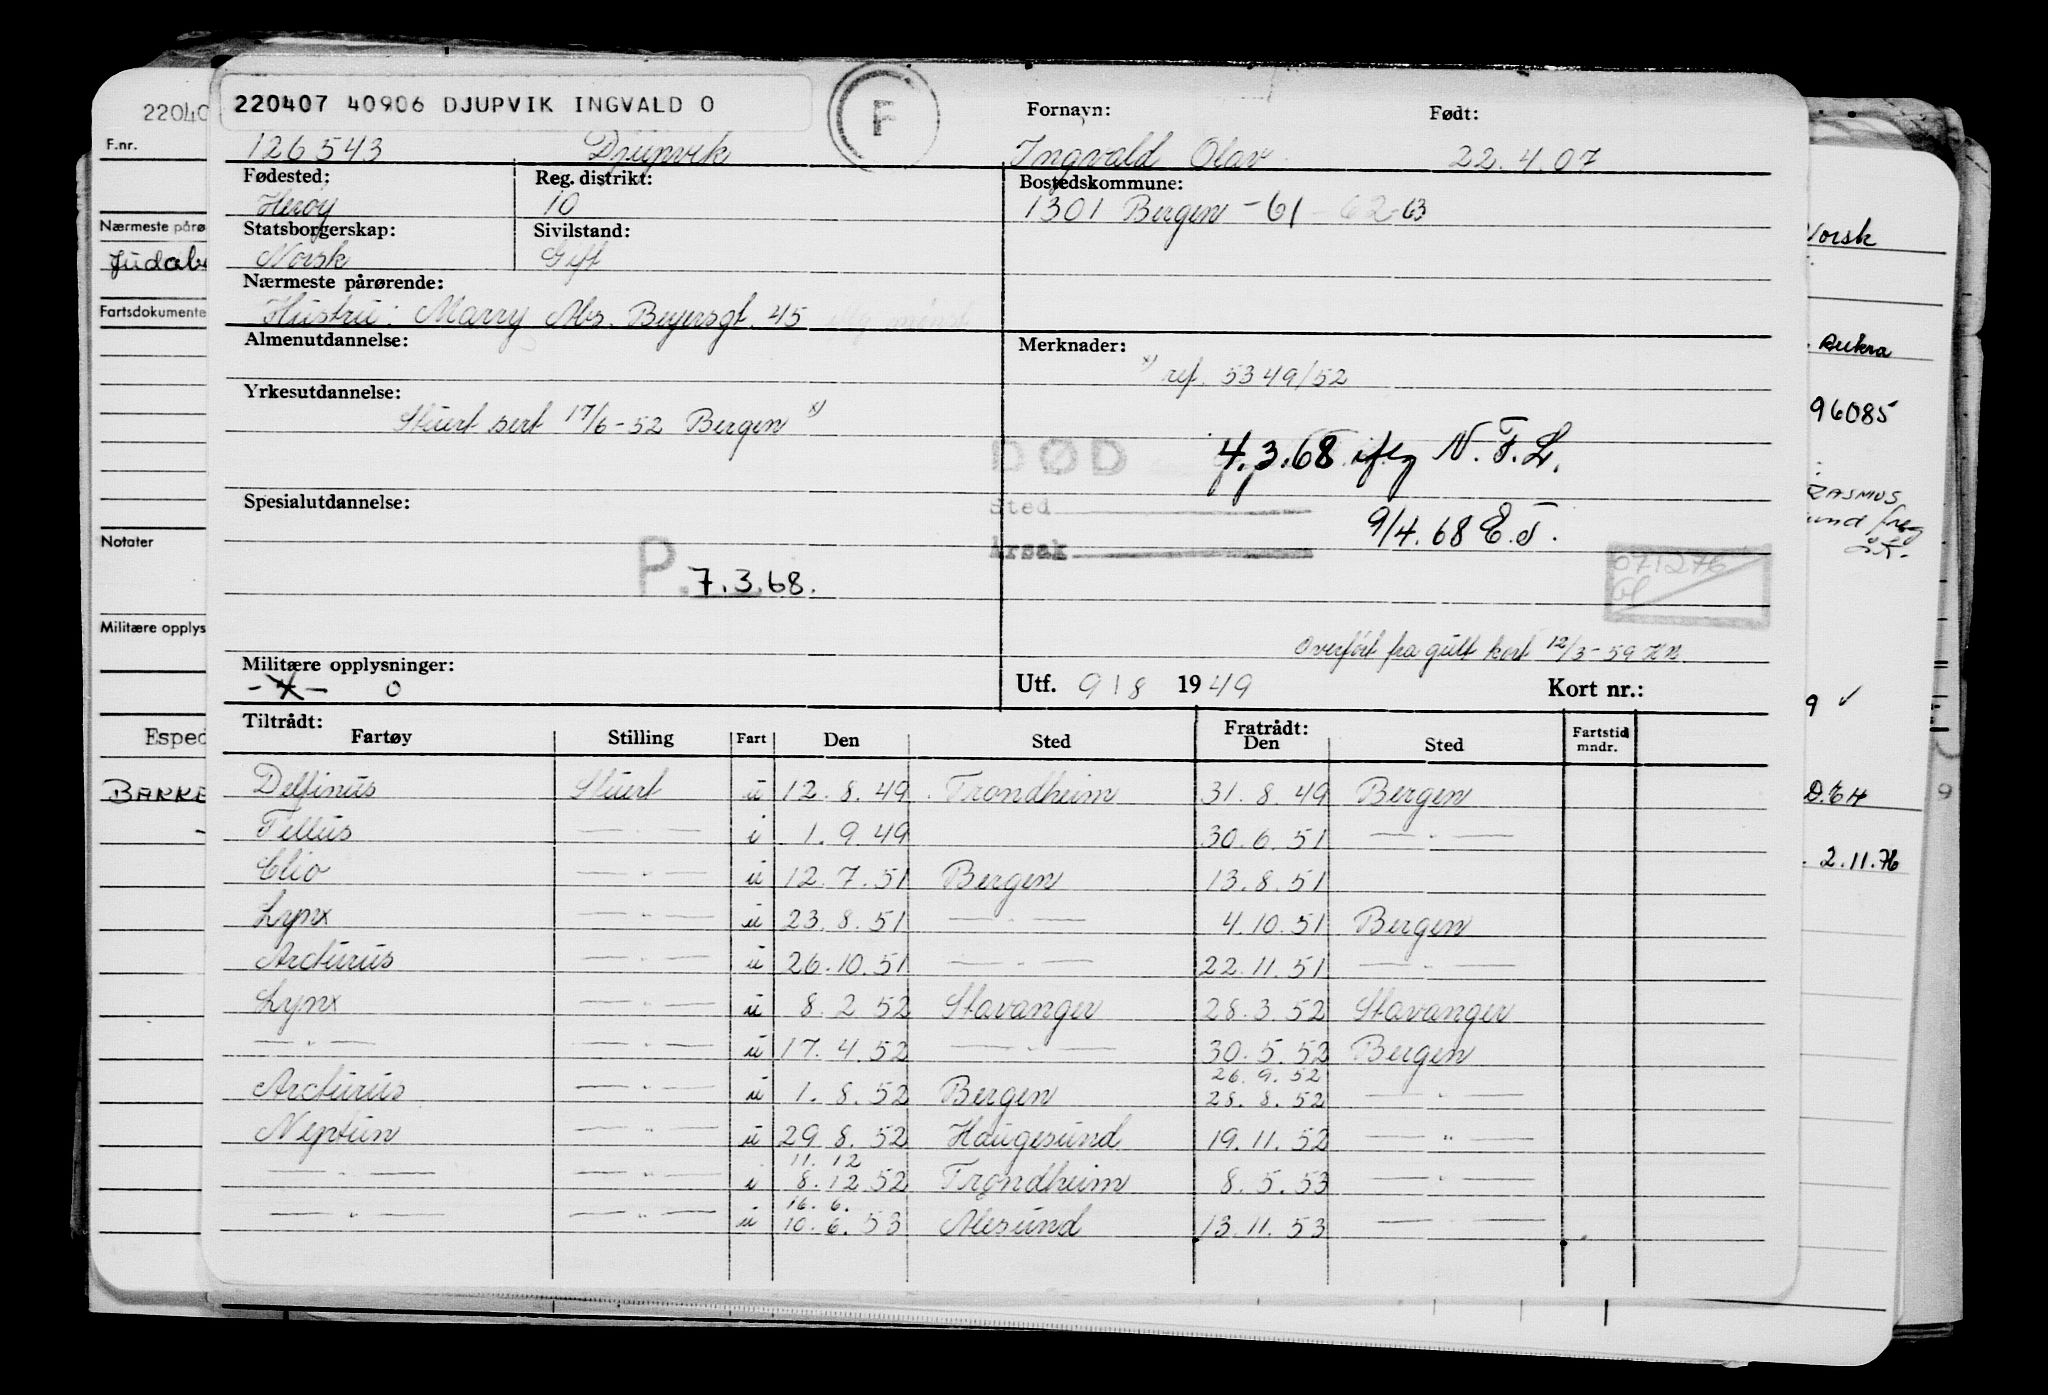 220407 40906 DJUPVIK INGVALD O
F
Fornavn: Født:
126543 Djupvik Ingvald Olav 22.4.07
Fødested: Reg. distrikt: Bostedskommune:
Herøy 10 1301 Bergen -61 -62-63
Statsborgerskap: Sivilstand:
Norsk Gift
Nærmeste pårørende:
Hustru: Marry Abs. Beyersgt. 45
Almenutdannelse: Merknader:
x) ref. 5349/52
Yrkesutdannelse:
Stuert sert 17/6-52 Bergen x)
DØD 4.3.68 iflg N.T.L.
Spesialutdannelse: Sted
9/4.68 E.T.
Årsak
P. 7.3.68.
071276
Overført fra gult kort 12/3-59 HN
Militære opplysninger:
-4- 0
Utf. 9/8 1949 Kort nr.:
Tiltrådt: Fratrådt:
Fartøy Stilling Fart Den Sted Den Sted Fartstid mndr.
Delfinus Stuert u 12.8.49 Trondheim 31.8.49 Bergen
Tellus —"— i 1.9.49 30.6.51 —"—
Clio —"— u 12.7.51 Bergen 13.8.51
Lynx —"— u 23.8.51 —"— 4.10.51 Bergen
Arcturus —"— u 26.10.51 —"— 22.11.51 —"—
Lynx —"— u 8.2.52 Stavanger 28.3.52 Stavanger
—"— u 17.4.52 —"— 30.5.52 Bergen
26.9.52
Arcturus —"— u 1.8.52 Bergen 28.8.52 —"—
Neptun —"— u 29.8.52 Haugesund 19.11.52 —"—
11.12
—"— —"— i 8.12.52 Trondheim 8.5.53 —"—
16.6.
—"— —"— u 10.6.53 Ålesund 13.11.53 —"—
22040
F.nr.
Nærmeste pårø
Fartsdokumente
Notater
Militære opplys
Esped
BAKKE
Norsk
Aukra
96085
RASMUS
9 ✓
2.11.76
9